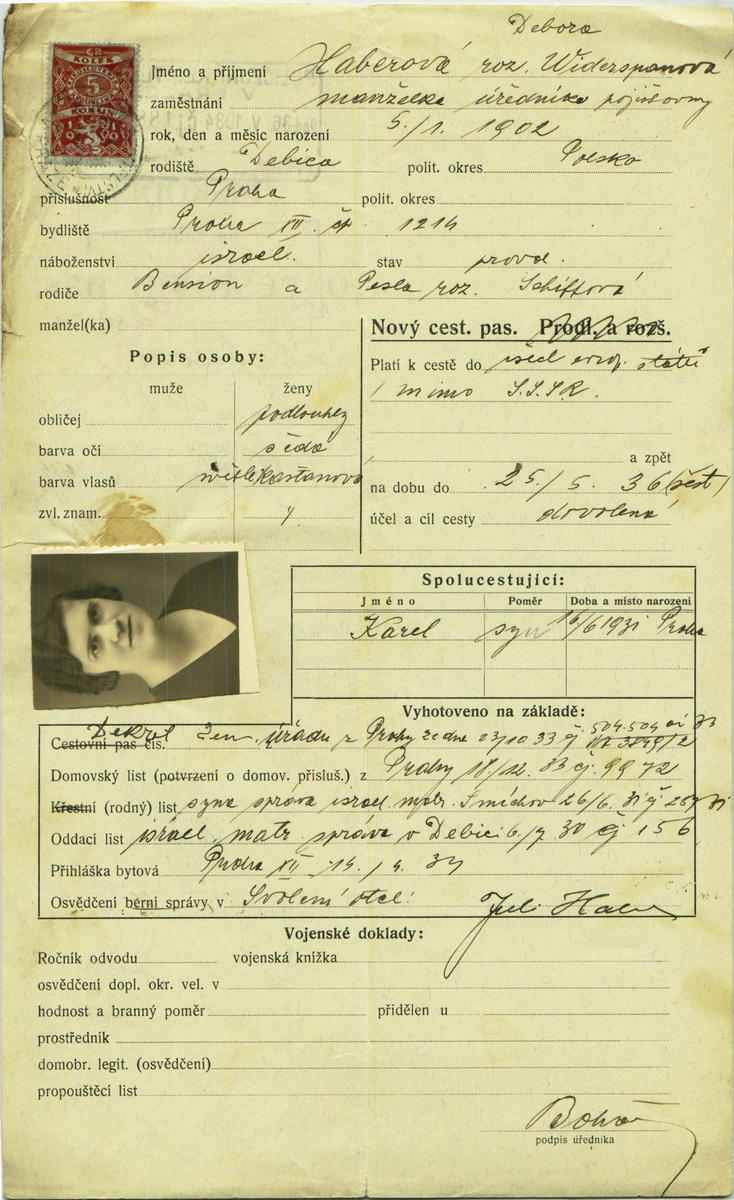 Debora
ČR
KOLEK
5
KORUN
Jméno a příjmení Haberová roz. Widerspanová
zaměstnání manželka úředníka pojišťovny
rok, den a měsíc narození 5/1. 1902
rodiště Debica polit. okres Polsko
příslušnost Praha polit. okres
bydliště Praha XII. čp 1214
náboženství israel. stav provd.
rodiče Bension a Pesla roz. Schiffová
manžel(ka)
Nový cest. pas. Prodl. a rozš.
Popis osoby:
Platí k cestě do všech evrop. států
muže ženy
/ mimo S.S.S.R.
obličej podlouhlý
barva očí šedá
a zpět
barva vlasů světlekaštanová
na dobu do 25/5. 36 (šest)
zvl. znam.
účel a cíl cesty dovolená
Spolucestující:
Jméno Poměr Doba a místo narození
Karel syn 16/6 1931 Praha
Vyhotoveno na základě:
Cestovní pas čís. Dekret zem. úřadu z Prahy ze dne 23/10 33 č.
Domovský list (potvrzení o domov. přísluš.) z Prahy 18/12. 33 čj. 9972
Křestní (rodný) list syna správa israel. matr. Smíchov 26/6. 31 č.
Oddací list israel. matr. správa v Debici 6/7 30 čj 156
Přihláška bytová Praha XII 14./4. 34
Osvědčení berní správy v Svolení otce:
Vojenské doklady:
Ročník odvodu vojenská knížka
osvědčení dopl. okr. vel. v
hodnost a branný poměr přidělen u
prostředník
domobr. legit. (osvědčení)
propouštěcí list
podpis úředníka